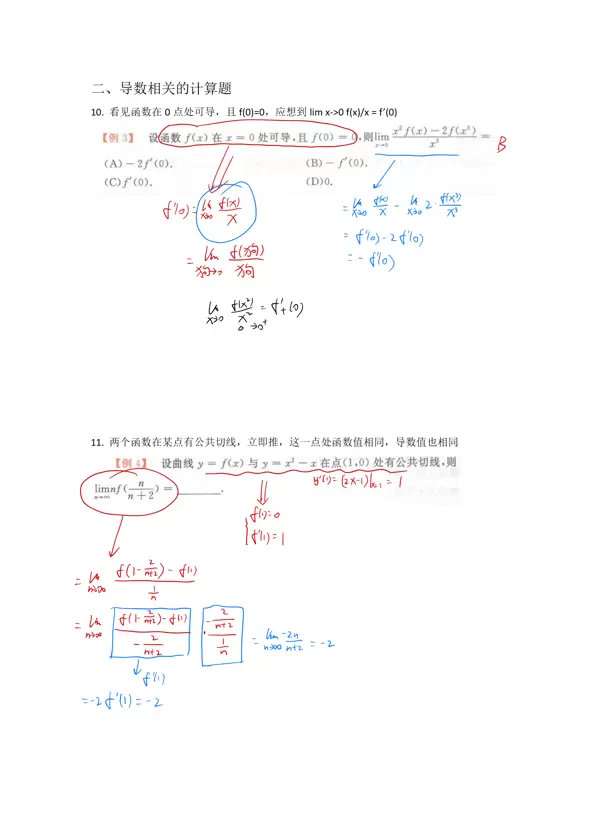 二、导数相关的计算题
10. 看见函数在 0 点处可导，且 f(0)=0，应想到 lim x->0 f(x)/x = f'(0)
【例3】 设函数 f(x) 在 x = 0 处可导，且 f(0) = 0，则 lim x→0 (x²f(x) − 2f(x³))/x³ = B
(A) − 2f′(0). (B) − f′(0).
(C) f′(0). (D) 0.
f'(0) = lim x→0 f(x)/x
= lim 狗→0 f(狗)/狗
lim x→0 f(x²)/x² = f'₊(0)
0 →0⁺
= lim x→0 f(x)/x − lim x→0 2·f(x³)/x³
= f'(0) − 2f'(0)
= − f'(0)
11. 两个函数在某点有公共切线，立即推，这一点处函数值相同，导数值也相同
【例4】 设曲线 y = f(x) 与 y = x² − x 在点(1,0) 处有公共切线，则
lim n→∞ nf(n/(n + 2)) = ______.
y'(1) = (2x−1)|x=1 = 1
f(1) = 0
f'(1) = 1
= lim n→∞ (f(1−2/(n+2)) − f(1))/(1/n)
= lim n→∞ (f(1−2/(n+2)) − f(1))/(−2/(n+2)) · (−2/(n+2))/(1/n) = lim n→∞ −2n/(n+2) = −2
f'(1)
= −2f'(1) = −2